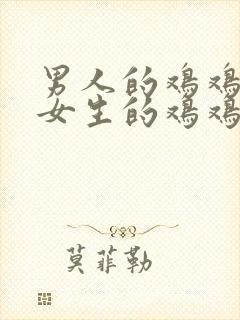 男人的鸡鸡
女生的鸡鸡
莫菲勒